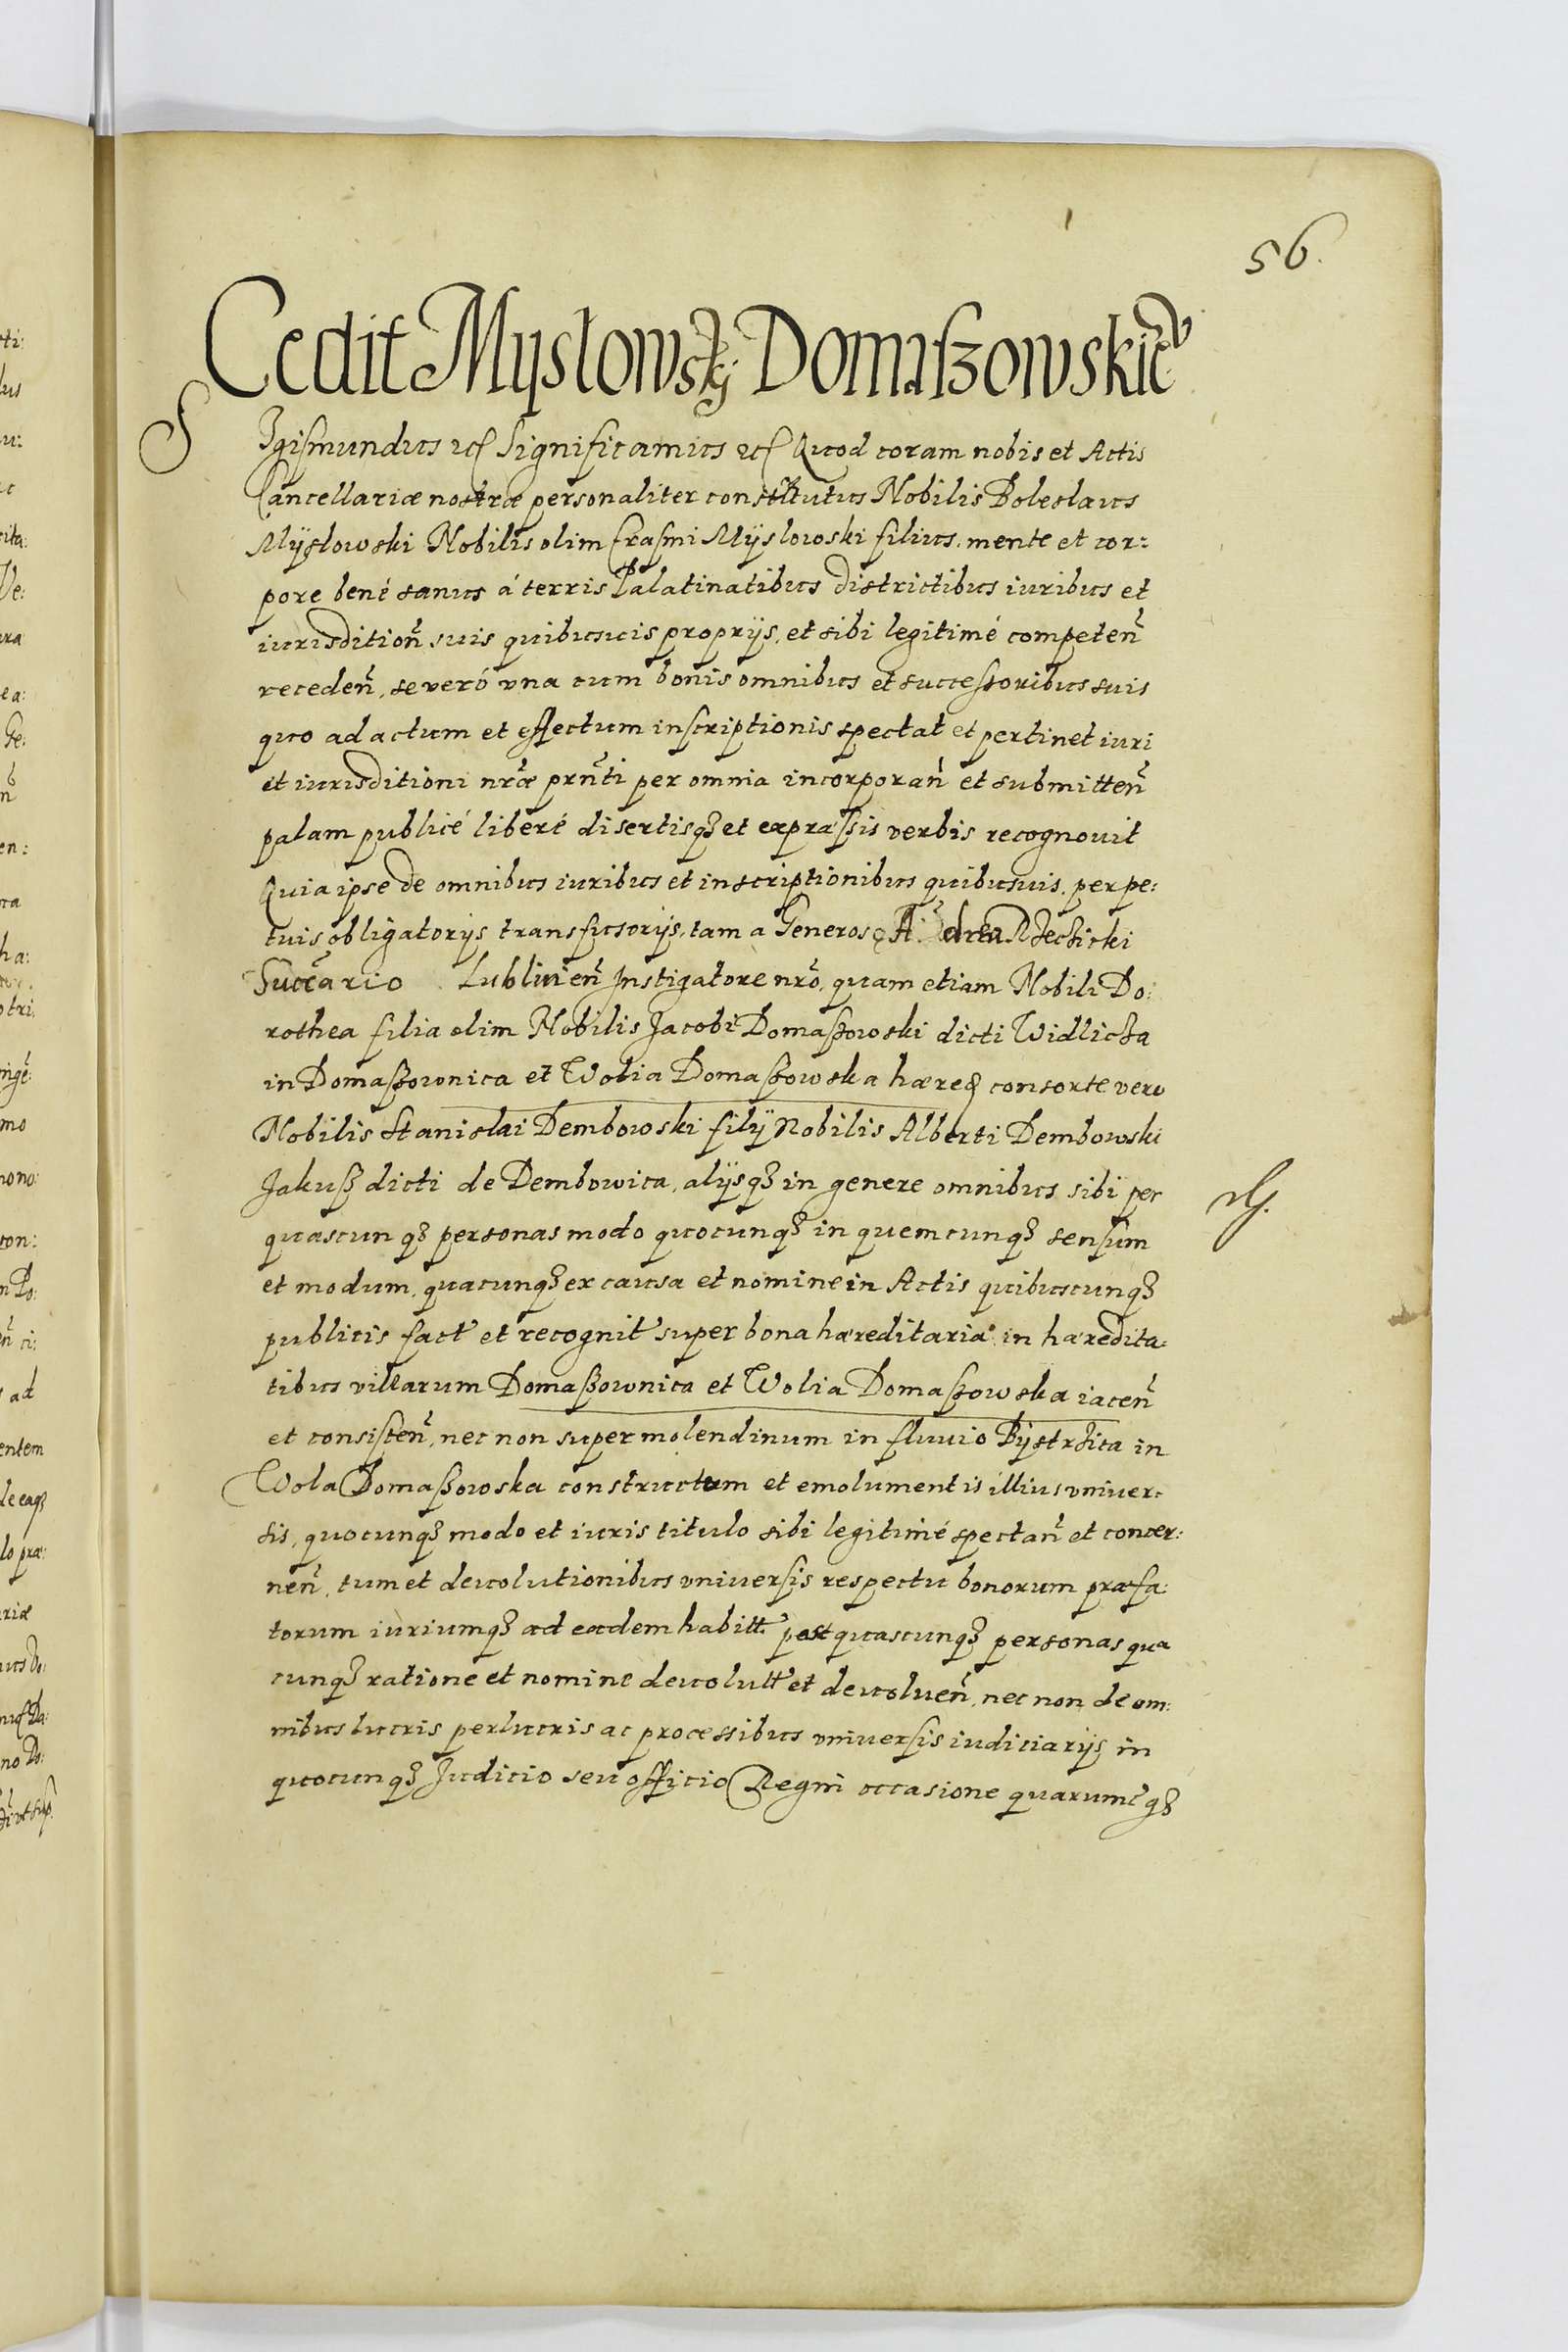 56.
Cedit Mysłowsky Domaszowskic̃
Sigismundus etc̃ Significamus etc̃ Quod coram nobis et Actis
Cancellariæ nostræ personaliter constitutus Nobilis Boleslaus
Mÿslowski Nobilis olim Erasmi Mÿslowski filius, mente et cor:
pore bené sanus á terris Palatinatibus districtibus iuribus et
iurisdition̄ suis quibusuis proprijs, et sibi legitimé competen̄
receden̄, se veró vna cum bonis omnibus et successoribus suis
quo ad actum et effectum inscriptionis spectat et pertinet iuri
et iurisditioni nr̄æ prn̄ti per omnia incorporan̄ et submitten̄
palam publicé liberé disertisq3 et expræssis verbis recognouit
Quia ipse de omnibus iuribus et inscriptionibus quibusuis, perpe:
tuis obligatorijs transfusorijs, tam a Generoso Andrea Rzeczicki
Succ̄ario Lublinien̄ Instigatore nr̄o, quam etiam Nobili Do:
rothea filia olim Nobilis Jacobi Domaszowski dicti Widlicza
in Domaszownica et Wolia Domaszowska hæred̨ consorte vero
Nobilis Stanislai Dembowski filÿ Nobilis Alberti Dembowski
Jakusz dicti de Dembowica, alÿsq3 in genere omnibus sibi per
quascunq3 personas modo quocunq3 in quemcunq3 sensum
et modum, quacunq3 ex causa et nomine in Actis quibuscunq3
publicis fact̄ et recognit̄ super bona hæreditaria in hæredita:
tibus villarum Domaszownica et Wolia Domaszowska iacen̄
et consisten̄, nec non super molendinum in fluuio Bÿstrzica in
Wola Domaszowska constructum et emolumentis illius vniuer:
sis, quocunq3 modo et iuris titulo sibi legitimé spectan̄ et concer:
nen̄, tum et deuolutionibus vniuersis respectu bonorum præfa:
torum iuriumq3 ad eadem habitt̄ post quascunq3 personas qua
cunq3 ratione et nomine deuolutt̄ et deuoluen̄, nec non de om:
nibus lucris perlucris ac processibus vniuersis iudiciarijs in
quocunq3 Judicio seu officio Regni occasione quarumc̄q3